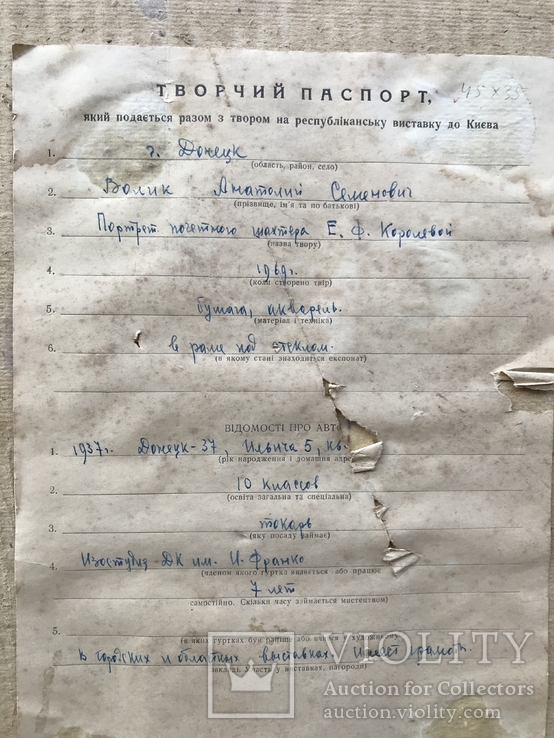 ТВОРЧИЙ ПАСПОРТ,
45 x 35
який подається разом з твором на республіканську виставку до Києва
1. г. Донецк
(область, район, село)
2. Волик Анатолий Семенович
(прізвище, ім'я та по батькові)
3. Портрет почетного шахтера Е. Ф. Королевой
(назва твору)
4. 1969г.
(коли створено твір)
5. бумага, акварель.
(матеріал і техніка)
6. в раме под стеклом.
(в якому стані знаходиться експонат)
ВІДОМОСТІ ПРО АВТО
1. 1937г. Донецк-37, Ильича 5, кв.
(рік народження і домашня адре
2. 10 классов
(освіта загальна та спеціальна)
3. токарь
(яку посаду займає)
4. Изостудия ДК им. И. Франко
(членом якого гуртка являється або працює
7 лет
самостійно. Скільки часу займається мистецтвом)
5.
(в яких гуртках був раніше або вчився у художньому
В городских и областных выставках. Имеет грамоты.
закладі. Участь у виставках, нагороди)
VIOLITY
Auction for Collectors
auction.violity.com